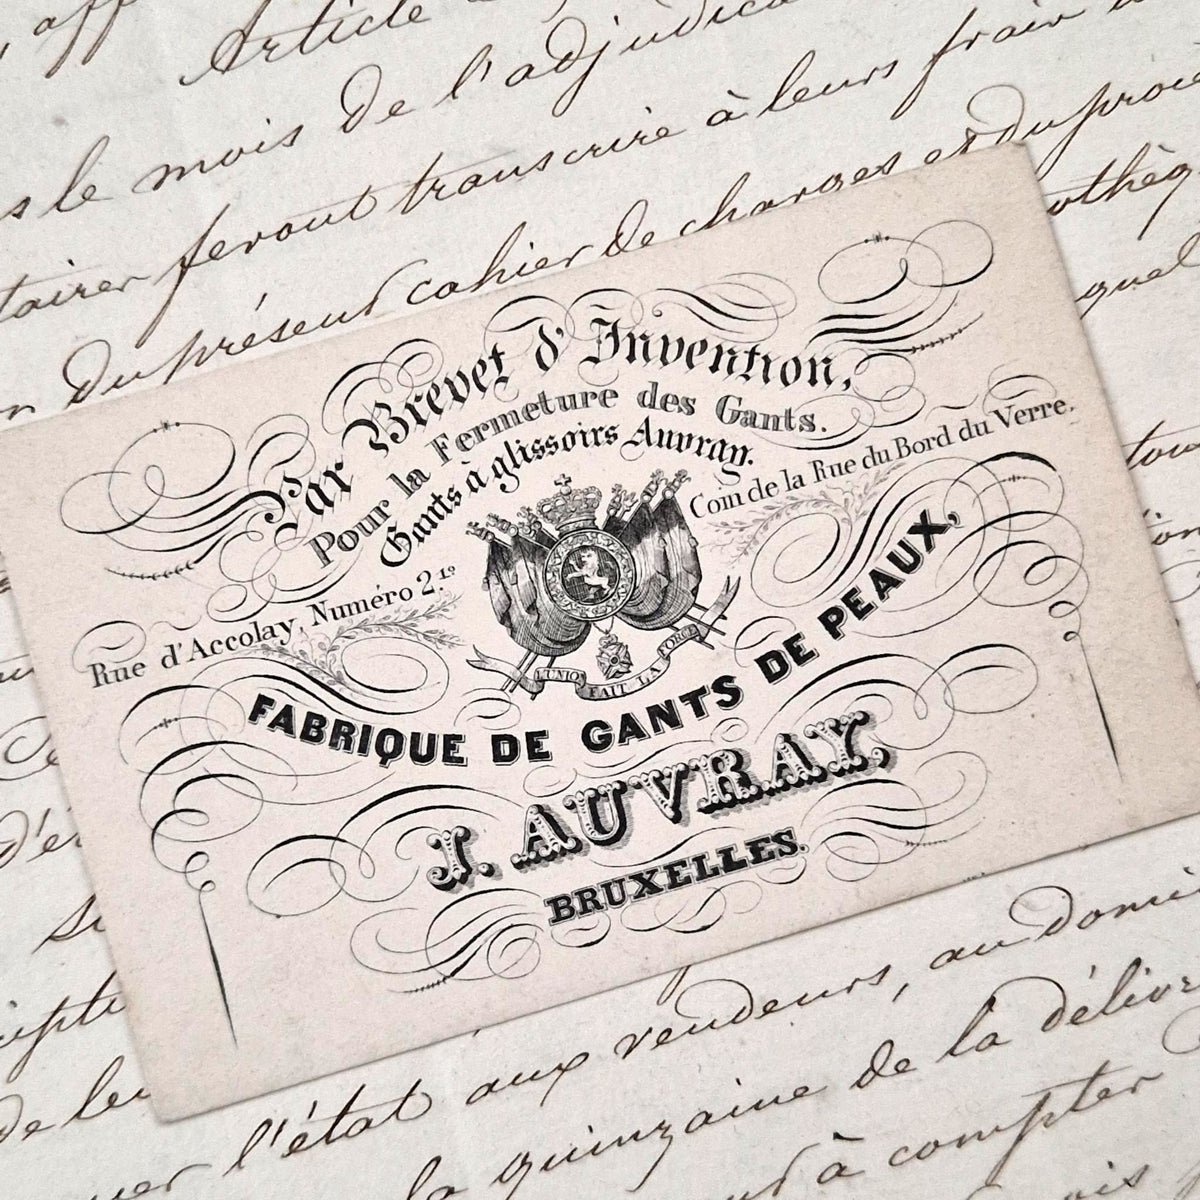 Article
s le mois de l'adjudica
taires feront transcrire à leurs frais
du présent cahier de charges et du procè
othèq
quel
Par Brevet d'Invention,
Pour la Fermeture des Gants.
Gants à glissoirs Auvray.
Rue d'Accolay, Numéro 2.1º
Coin de la Rue du Bord du Verre.
L'UNION FAIT LA FORCE
FABRIQUE DE GANTS DE PEAUX,
J. AUVRAY,
BRUXELLES.
l'état aux vendeurs, au domi
la quinzaine de la délivr
à compter